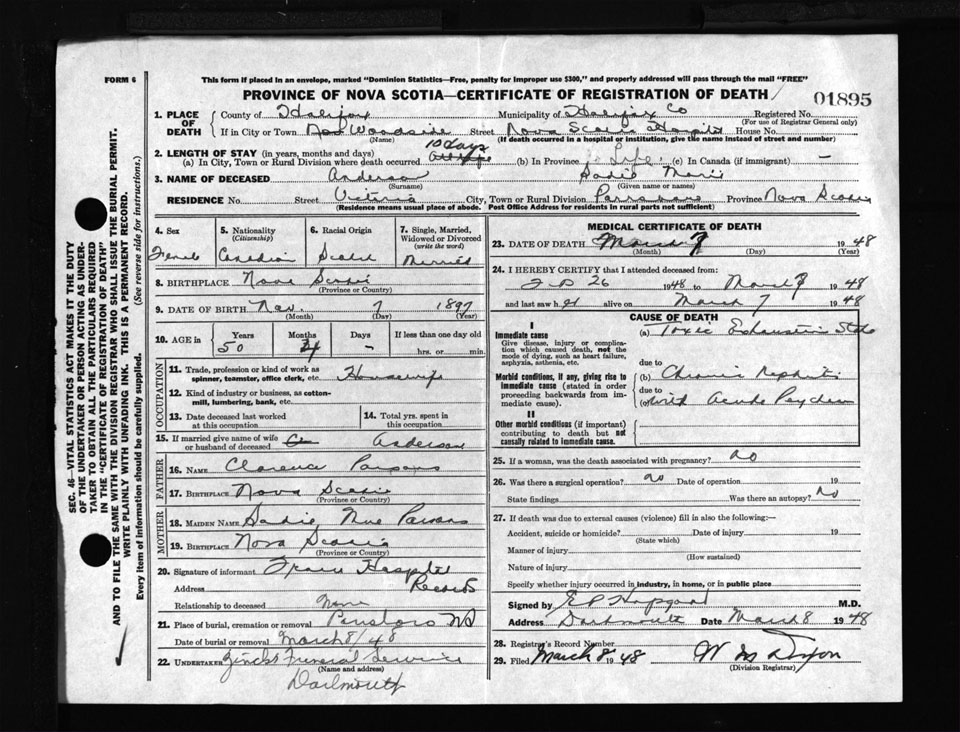 FORM 6
This form if placed in an envelope, marked "Dominion Statistics—Free, penalty for improper use $300," and properly addressed will pass through the mail "FREE"
PROVINCE OF NOVA SCOTIA—CERTIFICATE OF REGISTRATION OF DEATH
01895
1. PLACE OF DEATH
County of Halifax Municipality of Halifax Co Registered No.
(For use of Registrar General only)
If in City or Town Woodside Street Nova Scotia Hospital House No.
(Name) (If death occurred in a hospital or institution, give its name instead of street and number)
2. LENGTH OF STAY (in years, months and days) 10 days
(a) In City, Town or Rural Division where death occurred (b) In Province Life (c) In Canada (if immigrant) —
3. NAME OF DECEASED Anderson Sadie Marie
(Surname) (Given name or names)
RESIDENCE No. Street City, Town or Rural Division Parrsboro Province Nova Scotia
(Residence means usual place of abode. Post Office Address for residents in rural parts not sufficient)
4. Sex
Female
5. Nationality
(Citizenship)
Canadian
6. Racial Origin
7. Single, Married, Widowed or Divorced
(write the word)
Married
8. BIRTHPLACE Nova Scotia
(Province or Country)
9. DATE OF BIRTH Nov. 7 1897
(Month) (Day) (Year)
10. AGE in Years Months Days If less than one day old
50 4 - hrs. or min.
OCCUPATION
11. Trade, profession or kind of work as spinner, teamster, office clerk, etc. Housewife
12. Kind of industry or business, as cotton-mill, lumbering, bank, etc.
13. Date deceased last worked at this occupation
14. Total yrs. spent in this occupation
15. If married give name of wife or husband of deceased Anderson
FATHER
16. NAME Clarence Parsons
17. BIRTHPLACE Nova Scotia
(Province or Country)
MOTHER
18. MAIDEN NAME Sadie Parsons
19. BIRTHPLACE Nova Scotia
(Province or Country)
20. Signature of informant Hospital
Address Records
Relationship to deceased None
21. Place of burial, cremation or removal NS
Date of burial or removal March 8/48
22. UNDERTAKER Zincks Funeral Service
(Name and address)
Dartmouth
MEDICAL CERTIFICATE OF DEATH
23. DATE OF DEATH March 7 1948
(Month) (Day) (Year)
24. I HEREBY CERTIFY that I attended deceased from:
Feb 26 1948 to March 7 1948
and last saw her alive on March 7 1948
CAUSE OF DEATH
I
Immediate cause
Give disease, injury or complication which caused death, not the mode of dying, such as heart failure, asphyxia, asthenia, etc.
(a) Exhaustion State
due to
Morbid conditions, if any, giving rise to immediate cause (stated in order proceeding backwards from immediate cause).
(b) Chronic Nephritis
due to
(c) with Acute
II
Other morbid conditions (if important) contributing to death but not causally related to immediate cause.
25. If a woman, was the death associated with pregnancy? no
26. Was there a surgical operation? no Date of operation 19
State findings Was there an autopsy? No
27. If death was due to external causes (violence) fill in also the following:—
Accident, suicide or homicide? Date of injury 19
(State which)
Manner of injury
(How sustained)
Nature of injury
Specify whether injury occurred in industry, in home, or in public place
Signed by M.D.
Address Dartmouth Date March 8 1948
28. Registrar's Record Number
29. Filed March 8 1948 W M Dixon
(Division Registrar)
SEC. 46—VITAL STATISTICS ACT MAKES IT THE DUTY
OF THE UNDERTAKER OR PERSON ACTING AS UNDER-
TAKER TO OBTAIN ALL THE PARTICULARS REQUIRED
IN THE "CERTIFICATE OF REGISTRATION OF DEATH"
AND TO FILE THE SAME WITH THE DIVISION REGISTRAR WHO SHALL ISSUE THE BURIAL PERMIT.
WRITE PLAINLY WITH UNFADING INK. THIS IS A PERMANENT RECORD.
Every item of information should be carefully supplied. (See reverse side for instructions.)